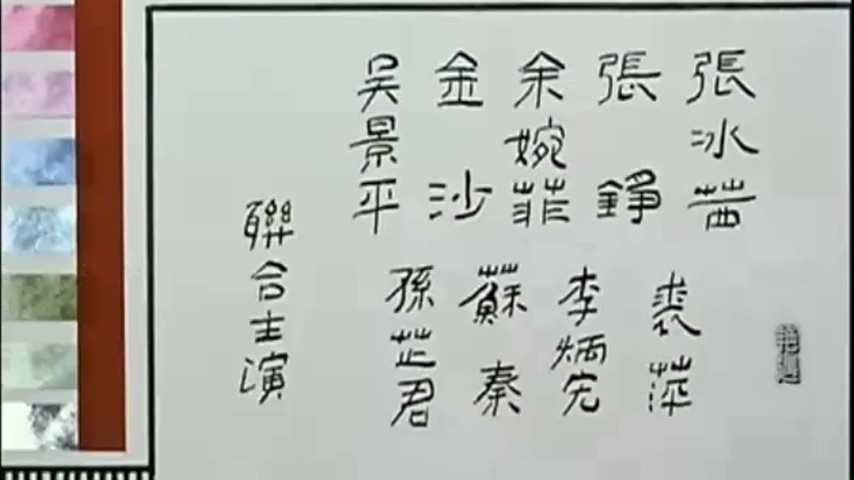 張冰茜
張錚
余婉菲
金沙
吴景平
裘萍
李炳完
蘇秦
孫芷君
聯合主演